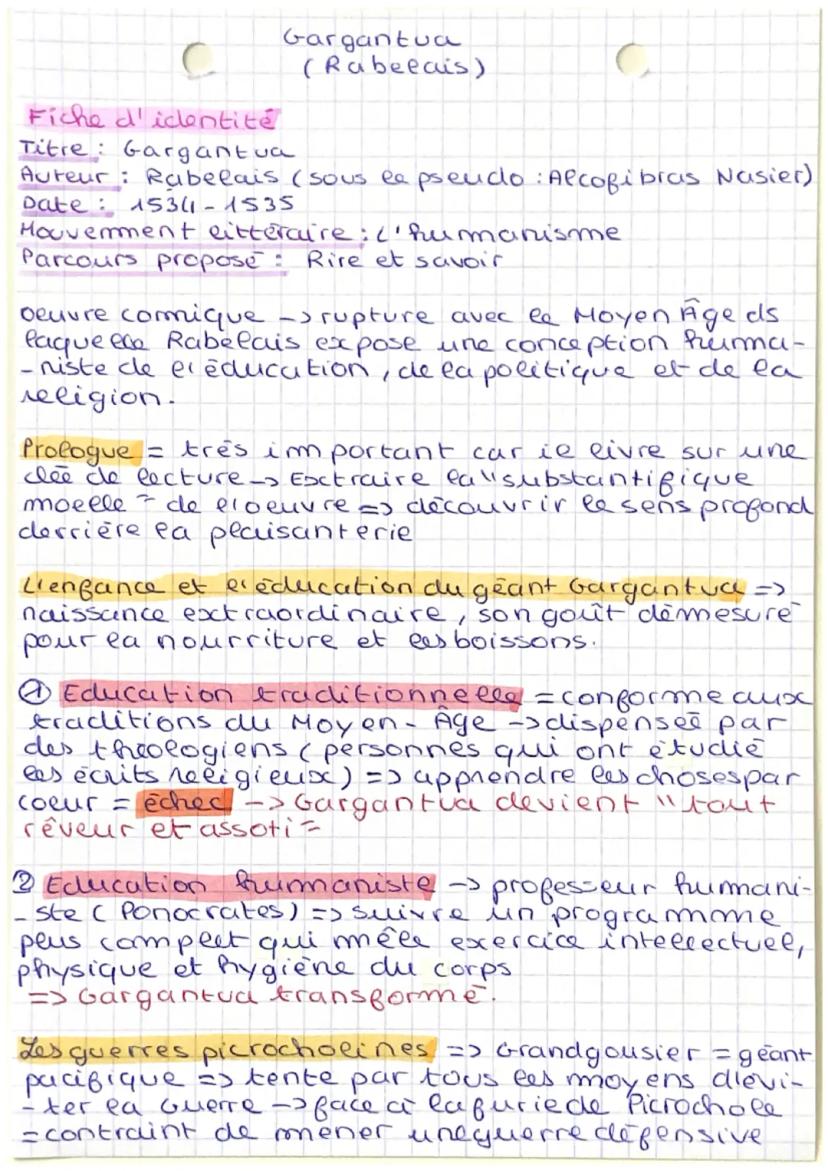 Gargantua
(Rabelais)
Fiche d'identité
Titre : Gargantua
Auteur : Rabelais (sous le pseudo : Alcofibras Nasier)
Date : 1534-1535
Mouvemment littéraire : L'humanisme
Parcours proposé : Rire et savoir
oeuvre comique -> rupture avec le Moyen Âge ds
laquelle Rabelais expose une conception huma-
-niste de l'éducation, de la politique et de la
religion.
Prologue = très important car il livre sur une
clée de lecture -> Exctraire la "substantifique
moelle" de l'oeuvre => découvrir le sens profond
derrière la plaisanterie
L'enfance et l'éducation du géant Gargantua =>
naissance exctraordinaire, son goût démesuré
pour la nourriture et les boissons.
① Education traditionnelle = conforme aux
traditions du Moyen-Âge -> dispensée par
des théologiens (personnes qui ont étudié
les écrits religieux) => apprendre les choses par
coeur = échec -> Gargantua devient "tout
rêveur et assoti"
② Education humaniste -> professeur humani-
-ste (Ponocrates) => suivre un programme
plus complet qui mêle exercice intellectuel,
physique et hygiène du corps
=> Gargantua transformé.
Les guerres picrocholines => Grandgousier = géant
pacifique => tente par tous les moyens d'évi-
-ter la Guerre -> face à la furie de Picrochole
= contraint de mener une guerre défensive